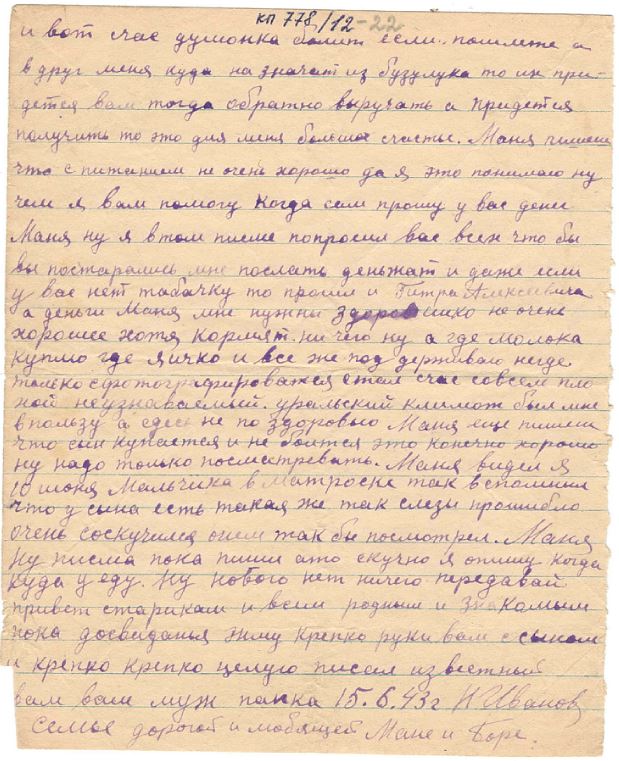 кп 778/12-22
и вот счас думонка болит если пошлете а
в друг меня куда на значат из бузулука то их при-
дется вам тогда обратно выручать а придется
получить то это для меня больша счастье. Маня пишеш
что с питанием не очень хорошо да я это понимаю ну
чем я вам помогу когда сам прошу у вас денег
Маня ну я в том писме попросил вас всех что бы
вы постарались мне послать деньжат и даже если
у вас нет табачку то просил и Петра Алексеевича
а деньги Маня мне нужны здоровишко не очень
хорошее хотя кормят ни чего ну а где молока
куплю где яичко и все же под держиваю негде
только сфотографироватся стал счас совсем пло
хой неузнаваемый. уральский климот был мне
в пользу а сдесь не по здоровью Маня еще пишеш
что сын купается и не боится это конечно хорошо
ну надо только посматревать. Маня видел я
10 июня Мальчика в матроске так вспомнил
что у сына есть такая же так слезы прошибло
очень соскучился огнем так бы посмотрел. Маня
ну писма пока пиши ато скучно я опишу когда
куда уеду. Ну нового нет ничего передавай
привет старикам и всем родным и знакомым
пока досвиданья жму крепко руки вам с сыном
и крепко крепко целую писал известный
вам ваш муж папка 15.6.43г И Иванов
семье дорогой и любящей Мане и Боре.